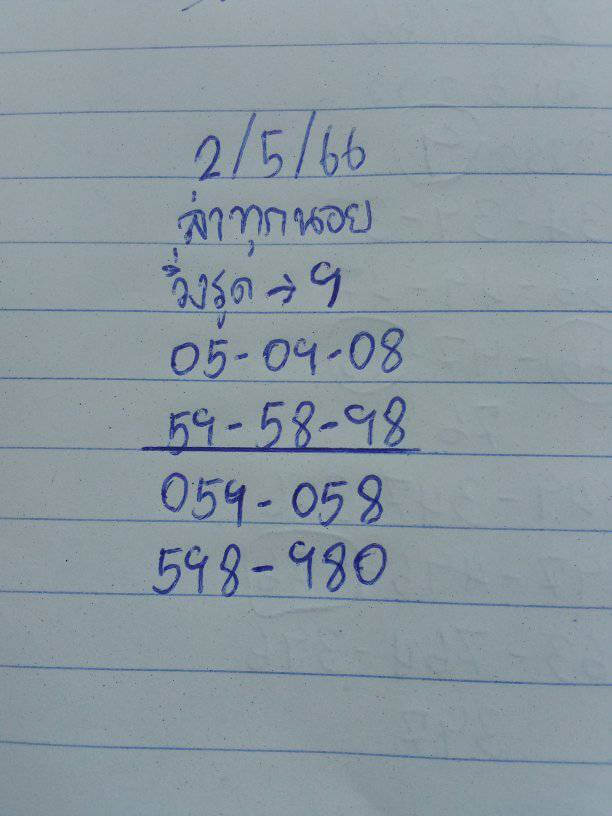 2/5/66
ล่าทุกนอย
วิ่งรูด → 9
05-09-08
59-58-98
059-058
598-980